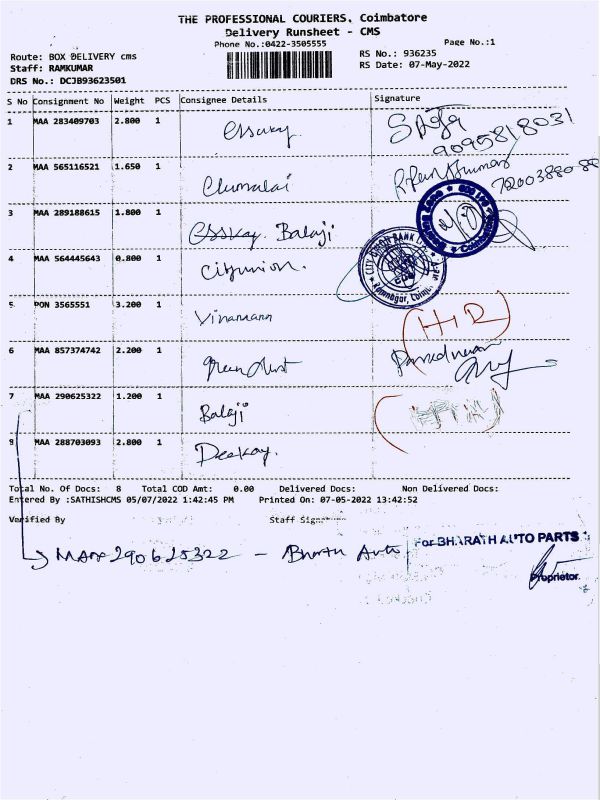 THE PROFESSIONAL COURIERS, Coimbatore
Delivery Runsheet - CMS
Phone No.:0422-3505555
Page No.:1
Route: BOX DELIVERY cms
RS No.: 936235
Staff: RAMKUMAR
RS Date: 07-May-2022
DRS No.: DCJB93623501
S No Consignment No Weight PCS Consignee Details Signature
1 MAA 283409703 2.800 1 Essvay
9095818031
2 MAA 565116521 1.650 1 Elumalai
3 MAA 289188615 1.800 1 Esskay. Balaji
4 MAA 564445643 0.800 1 Cityunion. CITY UNION BANK
Ramnagar,
5 PON 3565551 3.200 1
6 MAA 857374742 2.200 1 Green dust
7 MAA 290625322 1.200 1 Balaji
8 MAA 288703093 2.800 1 Deekay.
Total No. Of Docs: 8 Total COD Amt: 0.00 Delivered Docs: Non Delivered Docs:
Entered By :SATHISHCMS 05/07/2022 1:42:45 PM Printed On: 07-05-2022 13:42:52
Verified By Staff Signature
MAA 290625322 - Bharath Auto For BHARATH AUTO PARTS
Proprietor.